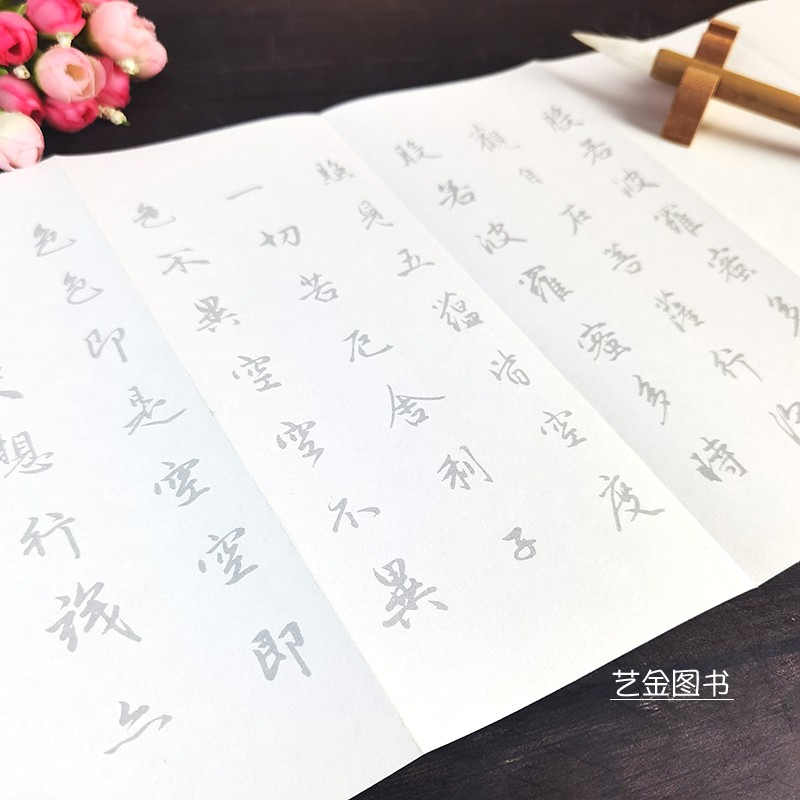 般若波羅蜜多
觀自在菩薩行深
般若波羅蜜多時
照見五蘊皆空度
一切苦厄舍利子
色不異空空不異
色色即是空空即
想行識亦
艺金图书